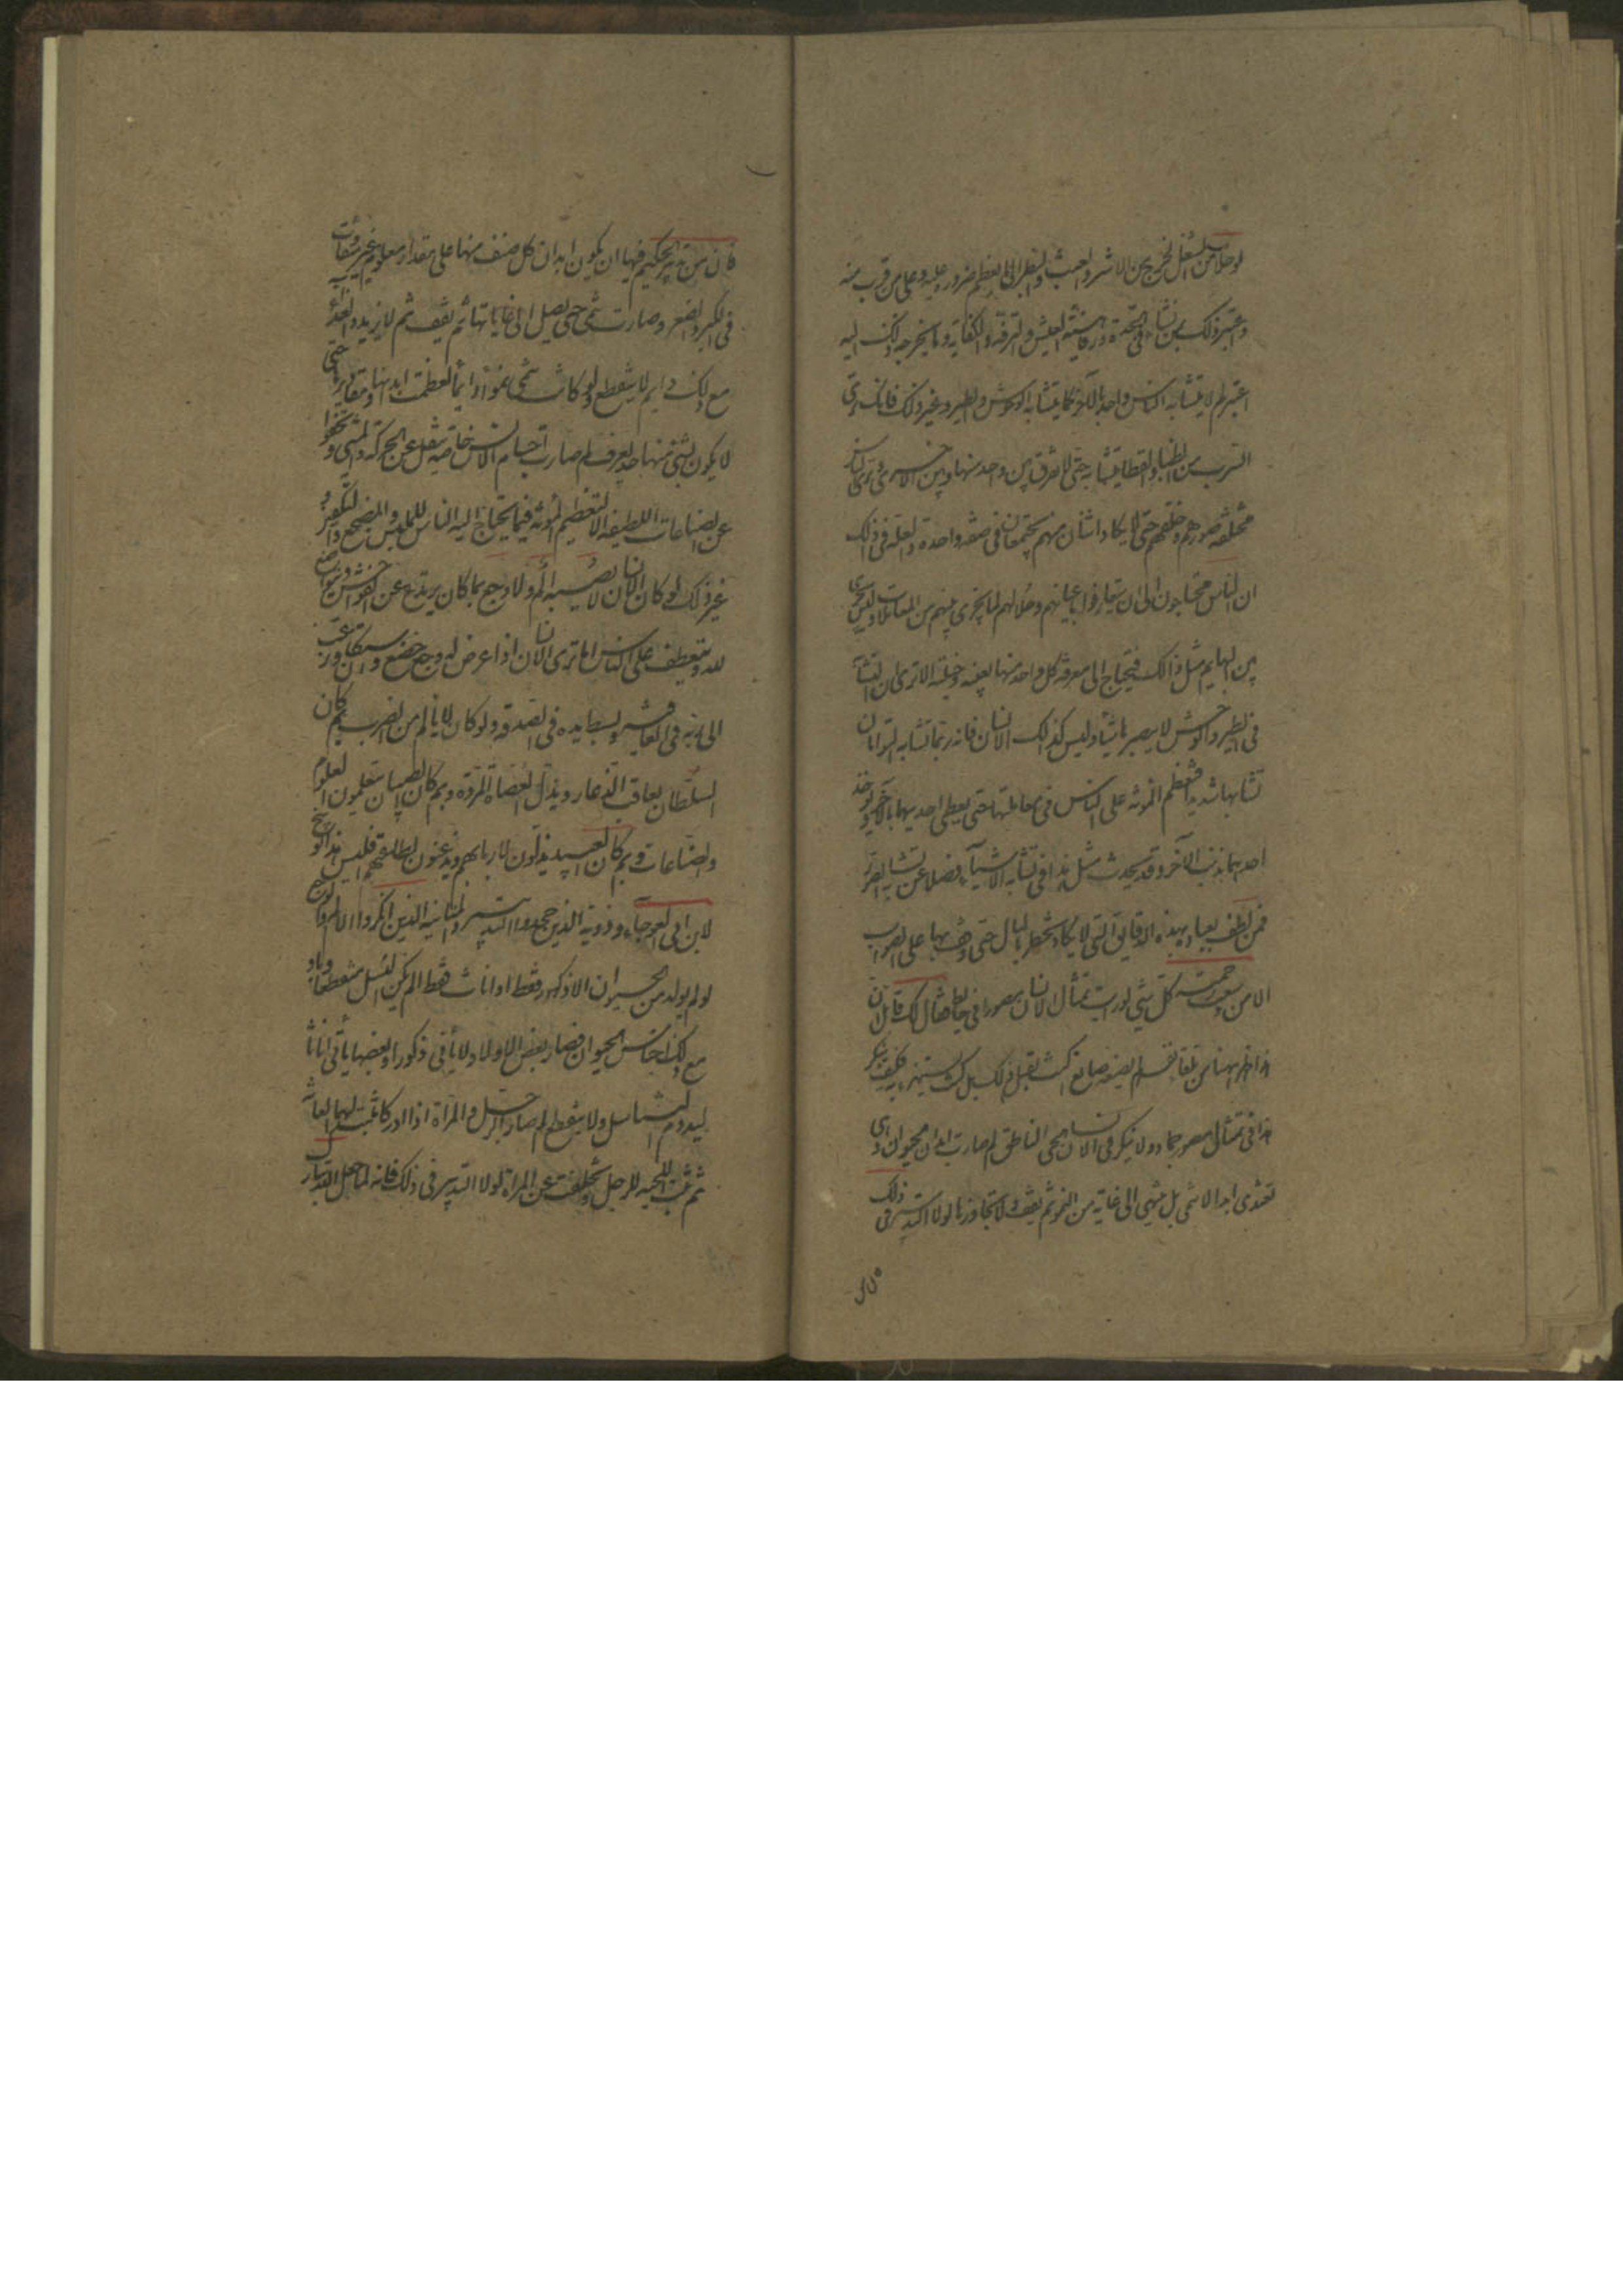 لو خلا من الشغل لخرج من الاشر والعبث والبطر الى ما يعظم ضرره عليه وعلى من قرب منه
واعتبر ذلك بمن نشاء فى الجدة ورفاهية العيش والترفه والكفاية وما يخرجه ذلك اليه
اعتبر لم لا يتشابه الناس واحد بالآخر كما يتشابه الوحوش والطير وغير ذلك فانك ترى
السرب من الظباء والقطا يتشابه حتى لا يفرق بين واحد منها وبين الاخرى وترى الناس
مختلفة صورهم وخلقهم حتى لا يكاد اثنان منهم يجتمعان فى صفة واحدة والعلة فى ذلك
ان الناس محتاجون الى ان يتعارفوا باعيانهم وحلالهم لما يجرى بينهم من المعاملات وليس يجرى
بين البهايم مثل ذالك فيحتاج الى معرفة كل واحد منها بعينه وحليته الا ترى ان التشابه
فى الطير والوحش لا يضرهما شيئا وليس كذلك الانسان فانه ربما تشابه التوأمان
تشابها شديدا فتعظم المؤنة على الناس فى معاملتهما حتى يعطى احديهما بالآخر ويؤخذ
احديهما بذنب الآخر وقد يحدث مثل هذا فى تشابه الاشياء فضلا عن تشابه الصور
فمن لطف بعباده بهذه الدقايق التى لا يكاد تخطر بالبال حتى وقف بها على الصواب
الا من وسعت رحمته كل شئ لو رايت تمثال الانسان مصورا فى حايط فقال لك قايل ان
هذا ظهر ههنا من تلقاء نفسه لم يصنعه صانع اكنت تقبل ذلك بل كنت تستهزئ به فكيف تنكر
هذا فى تمثال مصور جماد ولا تنكر فى الانسان الحى الناطق لم صارت ابدان الحيوان وهى
تغتذى ابدا لا تنمى بل تنتهى الى غاية من النمو ثم تقف ولا تتجاوزها لولا التدبير فى ذلك
فان من تدبير الحكيم فيها ان يكون ابدان كل صنف منها على مقدار معلوم غير متفاوت
فى الكبير والصغير وصارت تنمى حتى تصل الى غاياتها ثم يقف ثم لا يزيد والغذاء
مع ذلك دايم لا ينقطع ولو كانت تنمى نموا دايما لعظمت ابدانها ومقاديرها حتى
لا يكون لشئ منها حد يعرف لم صارت اجسام الانس خاصة تثقل عن الحركة والمشى وتجفوا
عن الصناعات اللطيفة الا لتعظيم المؤنة فيما يحتاج اليه الناس للملبس والمضجع والتكفين و
غير ذلك لو كان الانسان لا يصيبه الم ولا وجع بما كان يرتدع عن الفواحش ويتواضع
لله ويتعطف على الناس اما ترى الانسان اذا عرض له وجع خضع واستكان ورغب
الى ربه فى العافية وبسط يده فى الصدقة ولو كان لا يالم من الضرب بم كان
السلطان يعاقب الذعار ويذل العصاة المردة وبم كان الصبيان يتعلمون العلوم
والصناعات وبم كان العبيد يذلون لاربابهم ويذعنون لطاعتهم افليس هذا توبيخ
لابن ابى العوجاء وذويه الذين جحدوا التدبير والمنانية الذين انكروا الالم والوجع
لو لم يولد من الحيوان الا ذكور فقط او اناث فقط الم يكن النسل منقطعا وباد
مع ذلك اجناس الحيوان فصار بعض الاولاد لا يأتى ذكورا وبعضها يأتى اناثا
ليدوم التناسل ولا ينقطع لم صار الرجل والمرأة اذا ادركا نبتت لهما العانة
ثم نبتت اللحية للرجل وتخلفت عن المرأة لولا التدبير فى ذلك فانه لما جعل الله تبارك